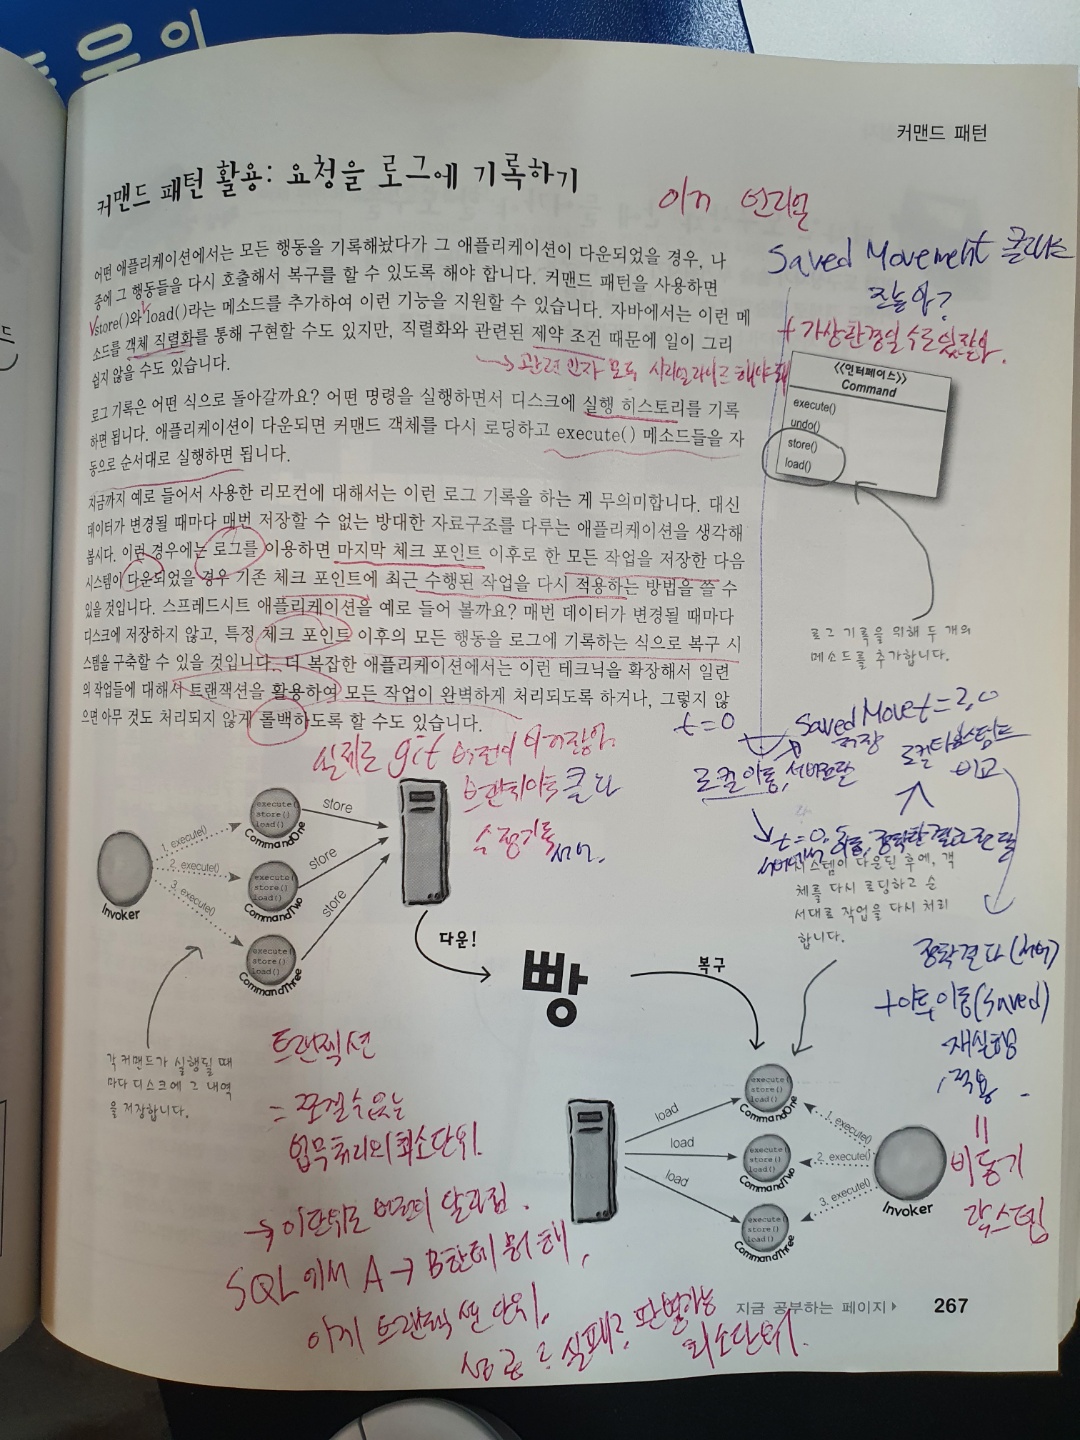 커맨드 패턴
커맨드 패턴 활용: 요청을 로그에 기록하기
어떤 애플리케이션에서는 모든 행동을 기록해놨다가 그 애플리케이션이 다운되었을 경우, 나
중에 그 행동들을 다시 호출해서 복구를 할 수 있도록 해야 합니다. 커맨드 패턴을 사용하면
store()와 load()라는 메소드를 추가하여 이런 기능을 지원할 수 있습니다. 자바에서는 이런 메
소드를 객체 직렬화를 통해 구현할 수도 있지만, 직렬화와 관련된 제약 조건 때문에 일이 그리
쉽지 않을 수도 있습니다.
→ 관련 인자 모두 시리얼라이즈 해야 돼
로그 기록은 어떤 식으로 돌아갈까요? 어떤 명령을 실행하면서 디스크에 실행 히스토리를 기록
하면 됩니다. 애플리케이션이 다운되면 커맨드 객체를 다시 로딩하고 execute() 메소드들을 자
동으로 순서대로 실행하면 됩니다.
지금까지 예로 들어서 사용한 리모컨에 대해서는 이런 로그 기록을 하는 게 무의미합니다. 대신
데이터가 변경될 때마다 매번 저장할 수 없는 방대한 자료구조를 다루는 애플리케이션을 생각해
봅시다. 이런 경우에는 로그를 이용하면 마지막 체크 포인트 이후로 한 모든 작업을 저장한 다음
시스템이 다운되었을 경우 기존 체크 포인트에 최근 수행된 작업을 다시 적용하는 방법을 쓸 수
있을 것입니다. 스프레드시트 애플리케이션을 예로 들어 볼까요? 매번 데이터가 변경될 때마다
디스크에 저장하지 않고, 특정 체크 포인트 이후의 모든 행동을 로그에 기록하는 식으로 복구 시
스템을 구축할 수 있을 것입니다. 더 복잡한 애플리케이션에서는 이런 테크닉을 확장해서 일련
의 작업들에 대해서 트랜잭션을 활용하여 모든 작업이 완벽하게 처리되도록 하거나, 그렇지 않
으면 아무 것도 처리되지 않게 롤백하도록 할 수도 있습니다.
이거 언리얼
Saved Movement 클래스
+ 가상환경일 수도 있잖아.
<<인터페이스>>
Command
execute()
undo()
store()
load()
로그 기록을 위해 두 개의
메소드를 추가합니다.
t=0
Saved Move t=2,0
저장
로컬 이동, 서버전달
로컬 타임스탬프
비교
실제로 git 버전이 이거잖아.
수정기록
execute()
store()
load()
CommandOne
execute()
store()
load()
CommandTwo
execute()
store()
load()
CommandThree
1. execute()
2. execute()
3. execute()
Invoker
store
store
store
다운!
빵
복구
시스템이 다운된 후에, 객
체를 다시 로딩하고 순
서대로 작업을 다시 처리
합니다.
정확결과 (서버)
+이후이동(Saved)
재실행
적용
=
비동기
락스텝
각 커맨드가 실행될 때
마다 디스크에 그 내역
을 저장합니다.
트랜젝션
= 쪼갤 수 없는
업무처리의 최소단위.
→ 이 단위로 버전이 달라짐.
SQL에서 A → B한테 뭐 해,
이게 트랜젝션 단위,
성공? 실패? 판별가능
최소단위.
load
load
load
execute()
store()
load()
CommandOne
execute()
store()
load()
CommandTwo
execute()
store()
load()
CommandThree
1. execute()
2. execute()
3. execute()
Invoker
지금 공부하는 페이지 ▶ 267